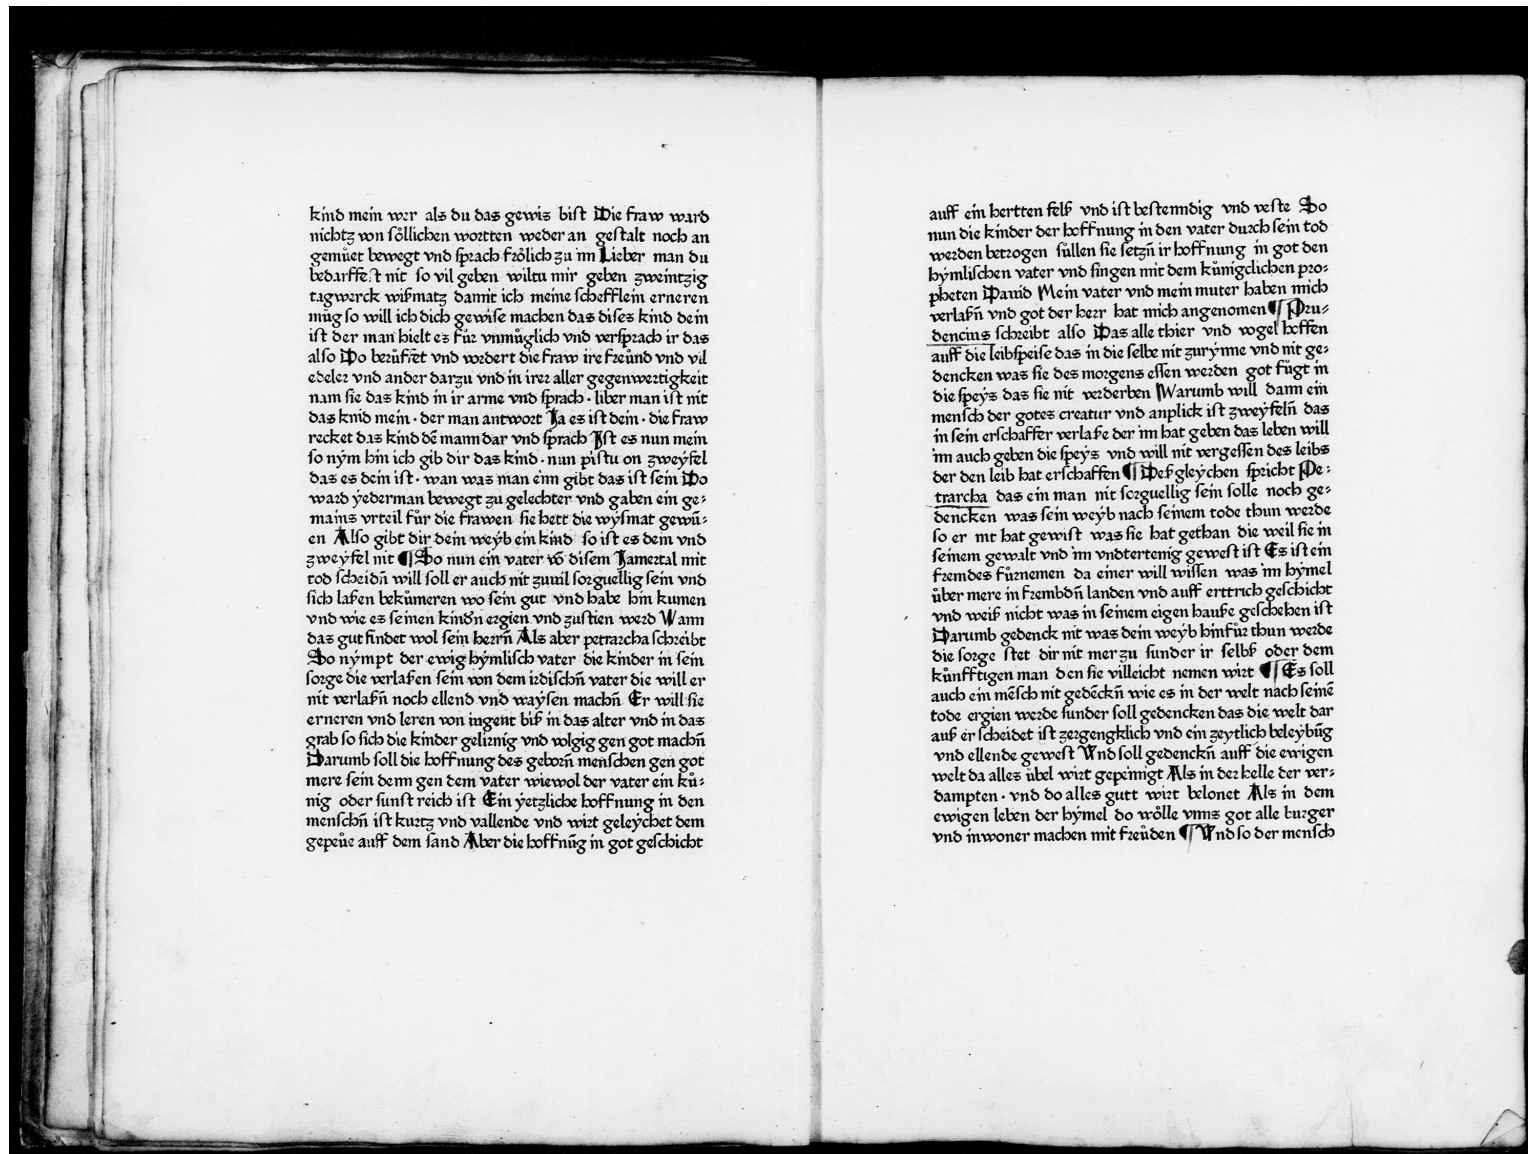 kind mein wer als du das gewis bist Die fraw ward
nichtz von söllichen wortten weder an gestalt noch an
gemuͤet bewegt vnd sprach frölich zu im Lieber man du
bedarffest nit so vil geben wiltu mir geben zweintzig
tagwerck wißmatz damit ich meine schefflein erneren
muͤg so will ich dich gewise machen das dises kind dein
ist der man hielt es fuͤr vnmuͤglich vnd versprach ir das
also Do beruͤffet vnd vordert die fraw ire freuͤnd vnd vil
edeler vnd ander darzu vnd in irer aller gegenwertigkeit
nam sie das kind in ir arme vnd sprach · liber man ist nit
das knid mein · der man antwort Ja es ist dein · die fraw
recket das kind dē mann dar vnd sprach Ist es nun mein
so nÿm hin ich gib dir das kind · nun pistu on zweÿfel
das es dein ist · wan was man einn gibt das ist sein Do
ward ÿederman bewegt zu gelechter vnd gaben ein ge⸗
mains vrteil fuͤr die frawen sie hett die wÿsmat gewū⸗
en Also gibt dir dein weÿb ein kind so ist es dein vnd
zweÿfel nit ¶ So nun ein vater vō disem Jamertal mit
tod scheidn̄ will soll er auch nit zuuil sorguellig sein vnd
sich laßen bekuͤmeren wo sein gut vnd habe hin kumen
vnd wie es seinen kindn̄ ergien vnd zustien werd Wann
das gut findet wol sein herrn̄ Als aber petrarcha schreibt
So nÿmpt der ewig hÿmlisch vater die kinder in sein
sorge die verlaßen sein von dem irdischn̄ vater die will er
nit verlaßn̄ noch ellend vnd waÿsen machn̄ Er will sie
erneren vnd leren von iugent biß in das alter vnd in das
grab so sich die kinder gelirnig vnd volgig gen got machn̄
Darumb soll die hoffnung des geborn̄ menschen gen got
mere sein denn gen dem vater wiewol der vater ein kuͤ⸗
nig oder sunst reich ist Ein ÿetzliche hoffnung in den
menschn̄ ist kurtz vnd vallende vnd wirt geleÿchet dem
gepeuͤe auff dem sand Aber die hoffnūg in got geschicht
auff ein hertten felß vnd ist bestenndig vnd veste So
nun die kinder der hoffnung in den vater durch sein tod
werden betrogen suͤllen sie setzn̄ ir hoffnung in got den
hÿmlischen vater vnd singen mit dem kuͤnigclichen pro⸗
pheten Dauid Mein vater vnd mein muter haben mich
verlaßn̄ vnd got der herr hat mich angenomen ¶ Pru⸗
dencius schreibt also Das alle thier vnd vogel hoffen
auff die leibspeise das in die selbe nit zurÿnne vnd nit ge⸗
dencken was sie des morgens essen werden got fuͤgt in
die speÿs das sie nit verderben Warumb will dann ein
mensch der gotes creatur vnd anplick ist zweÿfeln̄ das
in sein erschaffer verlaße der im hat geben das leben will
im auch geben die speÿs vnd will nit vergessen des leibs
der den leib hat erschaffen ¶ Deß gleÿchen spricht Pe⸗
trarcha das ein man nit sorguellig sein solle noch ge⸗
dencken was sein weÿb nach seinem tode thun werde
so er nit hat gewist was sie hat gethan die weil sie in
seinem gewalt vnd im vndtertenig gewest ist Es ist ein
fremdes fuͤrnemen da einer will wissen was im hÿmel
uͤber mere in frembdn̄ landen vnd auff erttrich geschicht
vnd weiß nicht was in seinem eigen hauße geschehen ist
Darumb gedenck nit was dein weÿb hinfuͤr thun werde
die sorge stet dir nit mer zu sunder ir selbß oder dem
kuͤnfftigen man den sie villeicht nemen wirt ¶ Es soll
auch ein mēsch nit gedēckn̄ wie es in der welt nach seinē
tode ergien werde sunder soll gedencken das die welt dar
auß er scheidet ist zergengklich vnd ein zeytlich beleÿbūg
vnd ellende gewest Vnd soll gedenckn̄ auff die ewigen
welt da alles uͤbel wirt gepeinigt Als in der helle der ver⸗
dampten · vnd do alles gutt wirt belonet Als in dem
ewigen leben der hÿmel do woͤlle vnns got alle burger
vnd inwoner machen mit freuͤden ¶ Vnd so der mensch